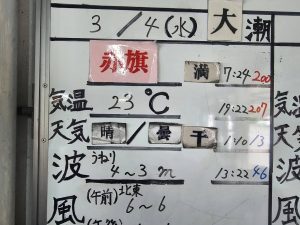 3/4(水) 大潮
赤旗 満 7:24 200
気温 23℃ 19:22 207
天気 晴/曇 干 1:10 13
波 うねり 4~3m 13:22 46
風 (午前) 北東 6~6